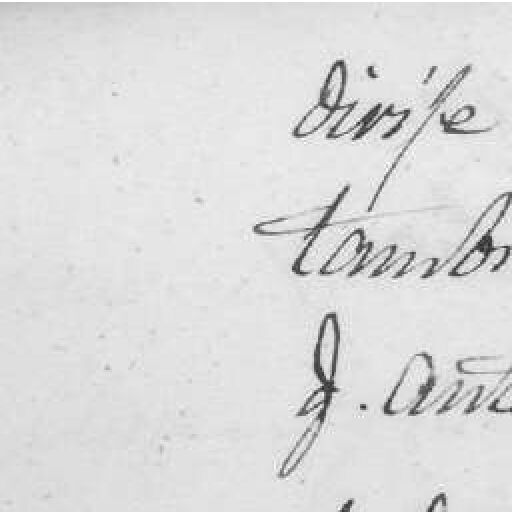 divise
tambo
J. ant